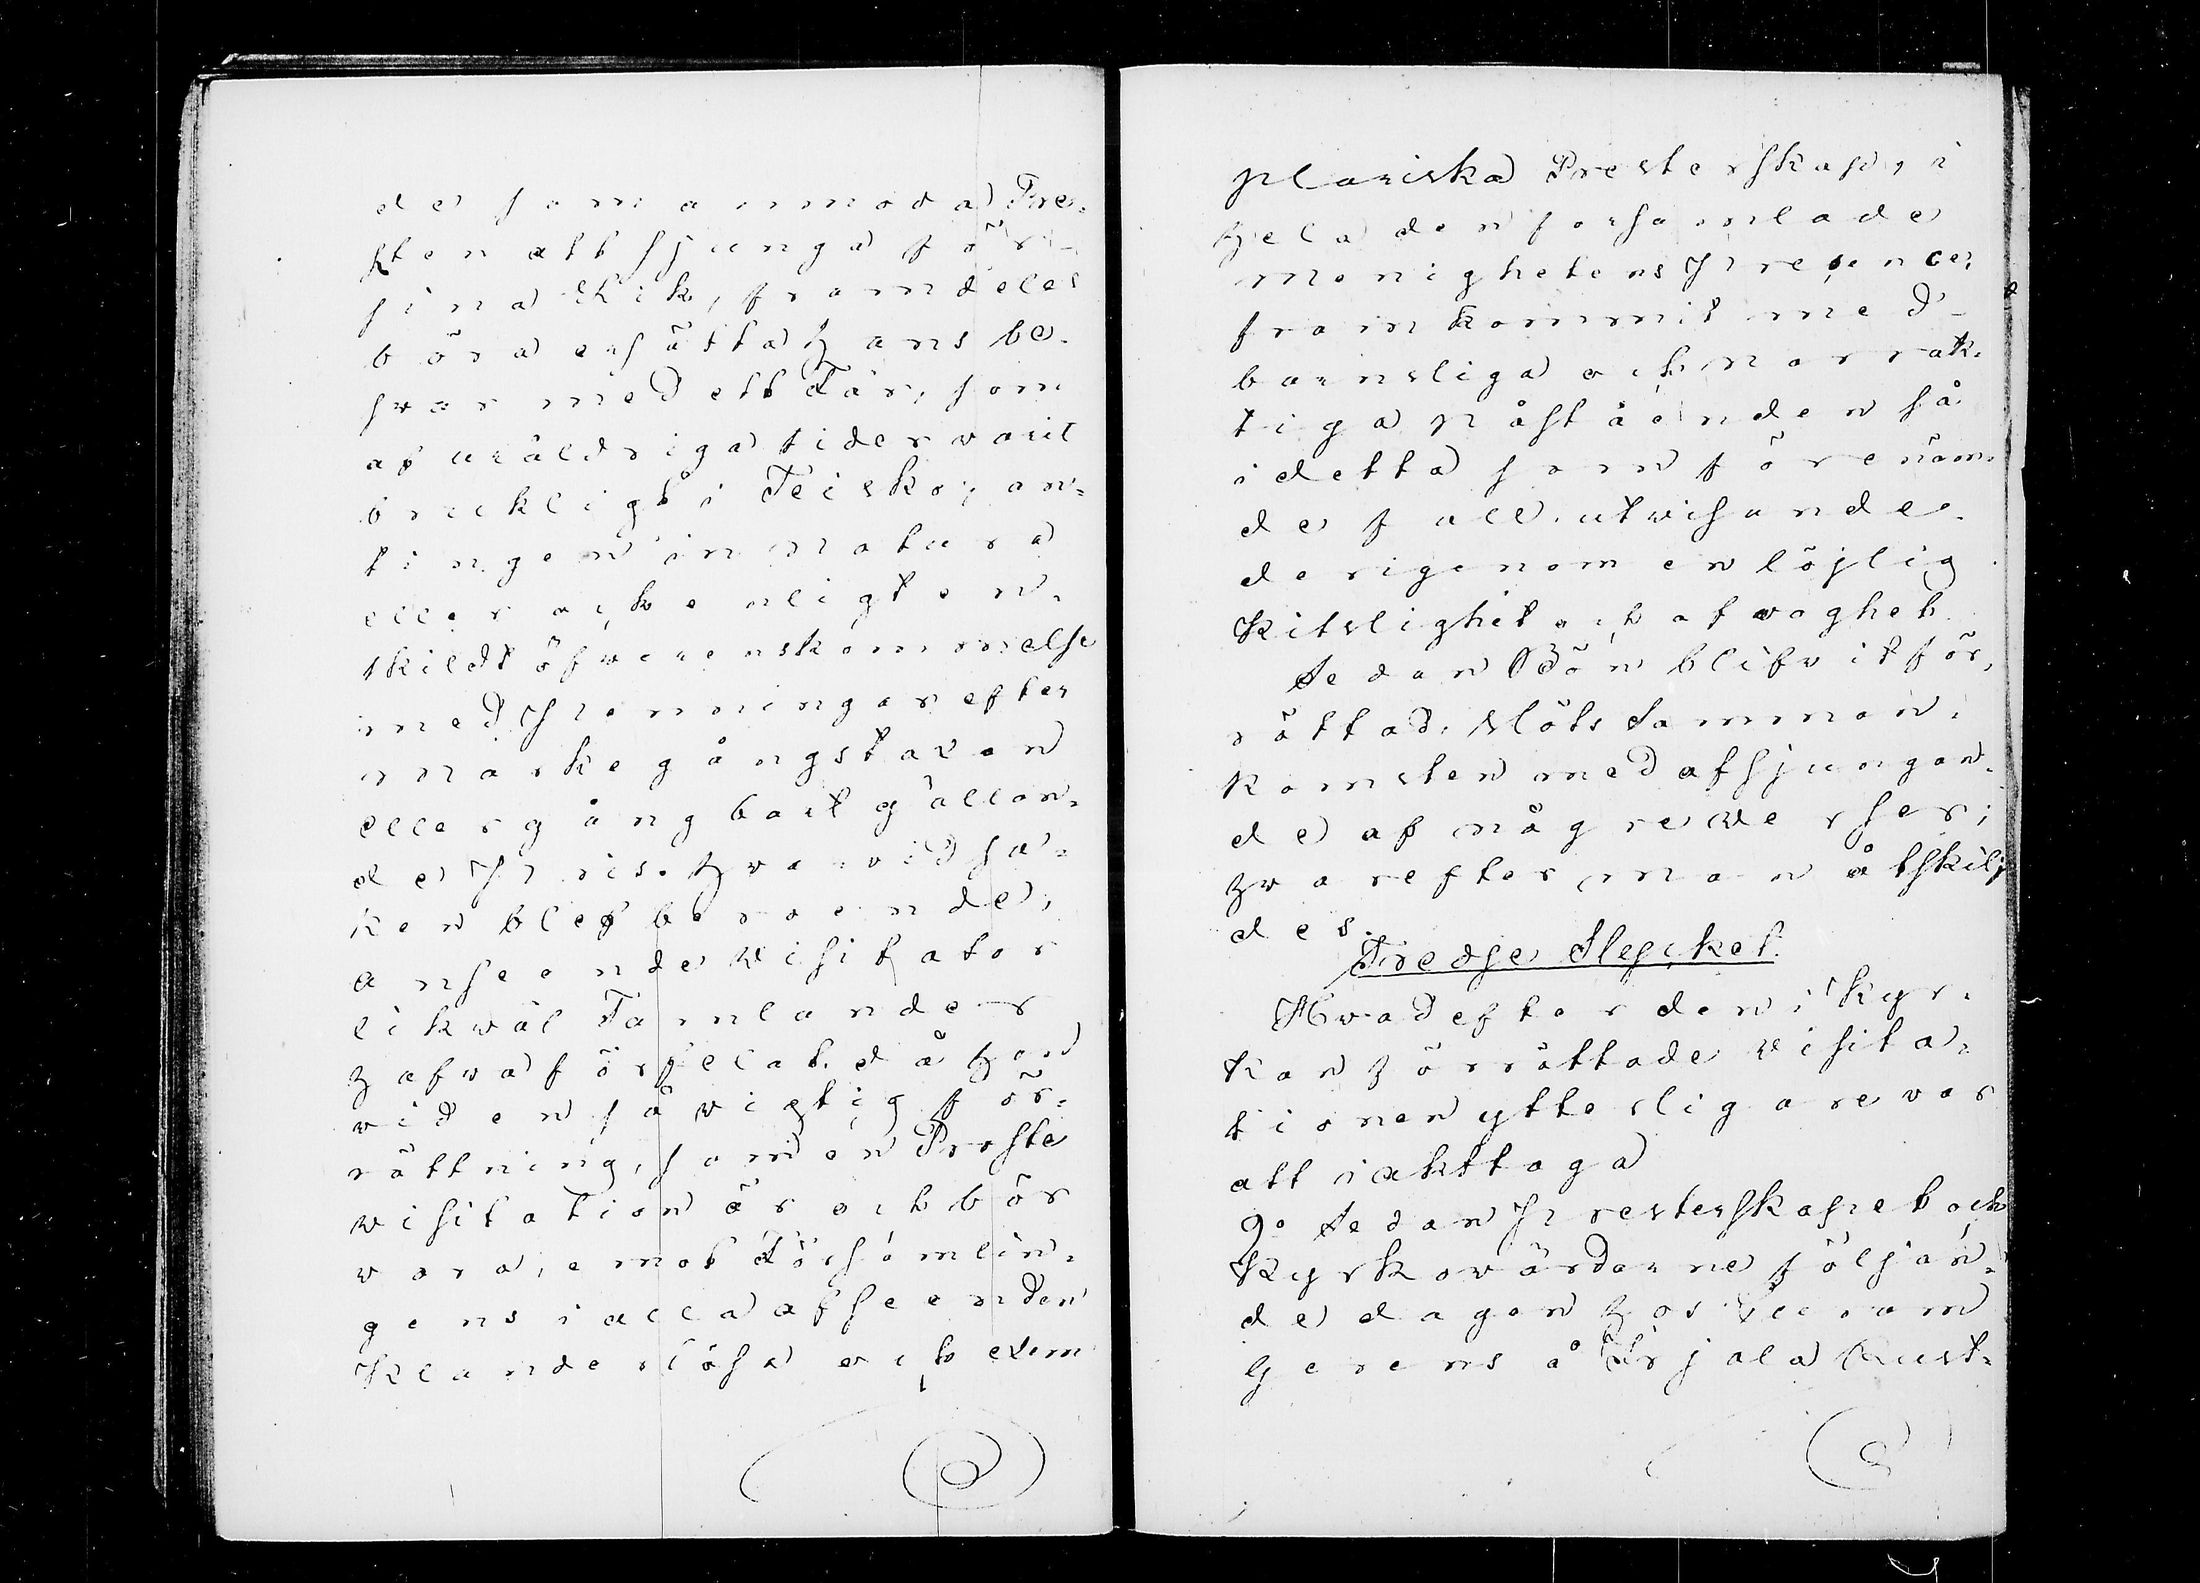 de som anmoda Pre-
sten att sjunga för
sina Lik, framdeles
böra ersätta hans be-
svär med ett Får, som
af uråldriga tider varit
brukligt i Teisko, an-
tingen in natura
eller ock enligt en-
skildt öfverenskommelse
med penningar efter
markegångstaxan
eller gångbart gällan-
de pris. hvarvid sa-
ken blef beroende,
anseende Visitator
likväl Tamlander
hafva förfelat, då han
vid en så vigtig för-
rättning, som en Proste
visitation är och bör
vara, emot Församlin-
gens i alla afseenden
klanderlösa och exem
plariska Presterskap, i
hela den församlade
menighetens presence,
framkommit med
barnsliga och narrak-
tiga påståenden så
i detta som förenäm-
de fall, utvisande
derigenom en löjlig
kitslighet och afvoghet.
Sedan Bön blifvit för-
rättad, slöts Samman-
komsten med afsjungan-
de af någre verser;
hvarefter man åtskilj
des.
Tredje Stycket.
Hvad efter den i kyr-
kan förrättade visita-
tionen ytterligare var
att iakttaga
9o Sedan presterskapet och
Kyrkovärdarne följan-
de dagen hos Vicarium
Gerens å Terjala Rust-